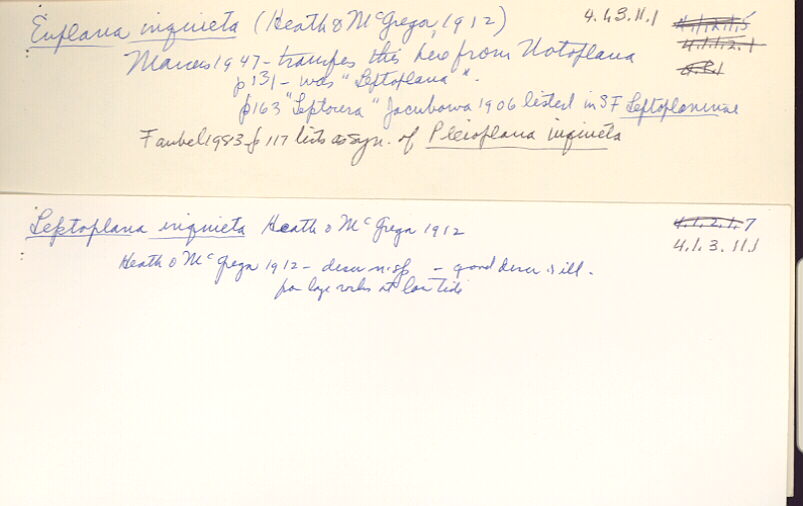 Euplana inquieta (Heath & McGregor, 1912) 4.1.3.11.1 4.1.12.11.5
Marcus 1947 - transfers this here from Notoplana 4.1.1.2.1
p 131 - was "Leptoplana".
p163 "Leptocera" Jacubowa 1906 listed in SF Leptoplaninae
Faubel 1983 p 117 lists as syn. of Pleioplana inquieta
Leptoplana inquieta Heath & McGregor 1912 4.1.2.1.7
4.1.3.11.1
Heath & McGregor 1912 - descr n. sp - good descr & ill.
low tide